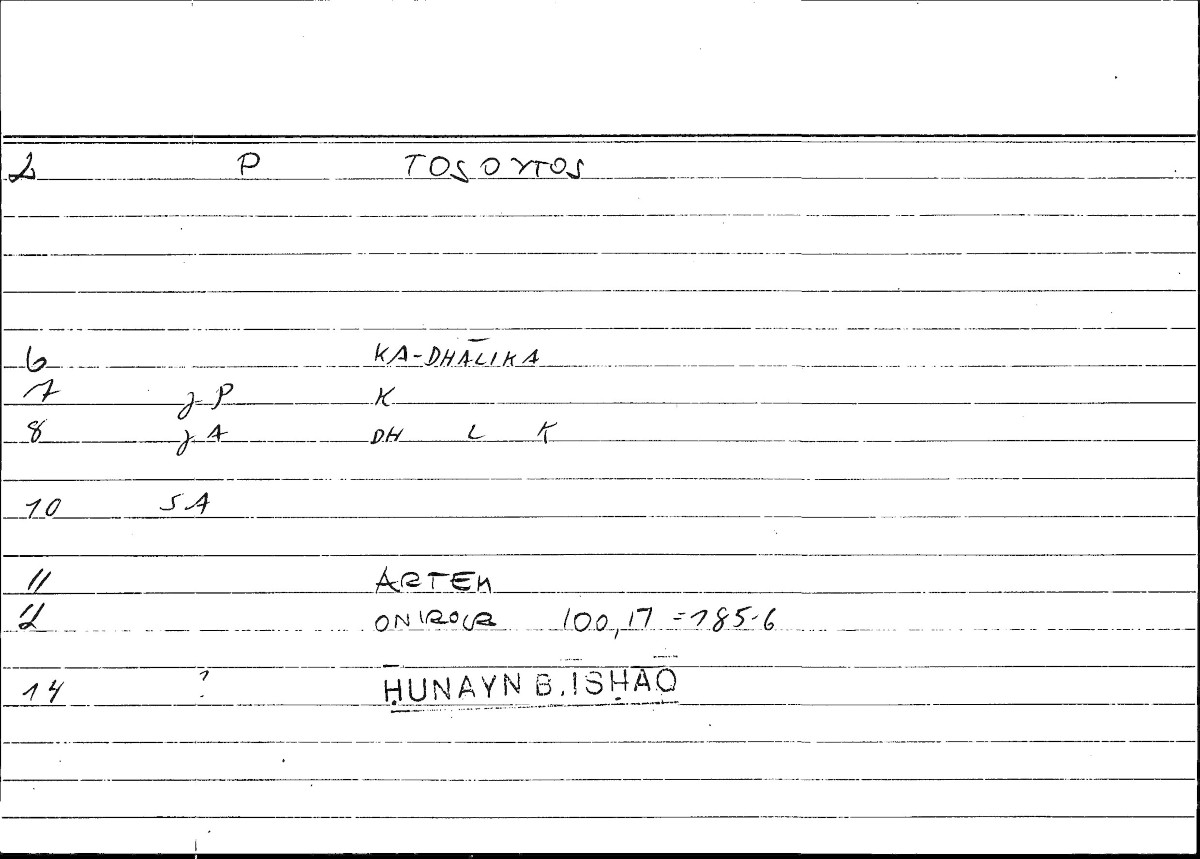 2 P TOSOYTOS
6 KA-DHĀLIKA
7 J P K
8 J A DH L K
10 S A
11 ARTEM
2 ONIROCR 100,17 = 185.6
14 ? ḤUNAYN B. ISḤĀQ